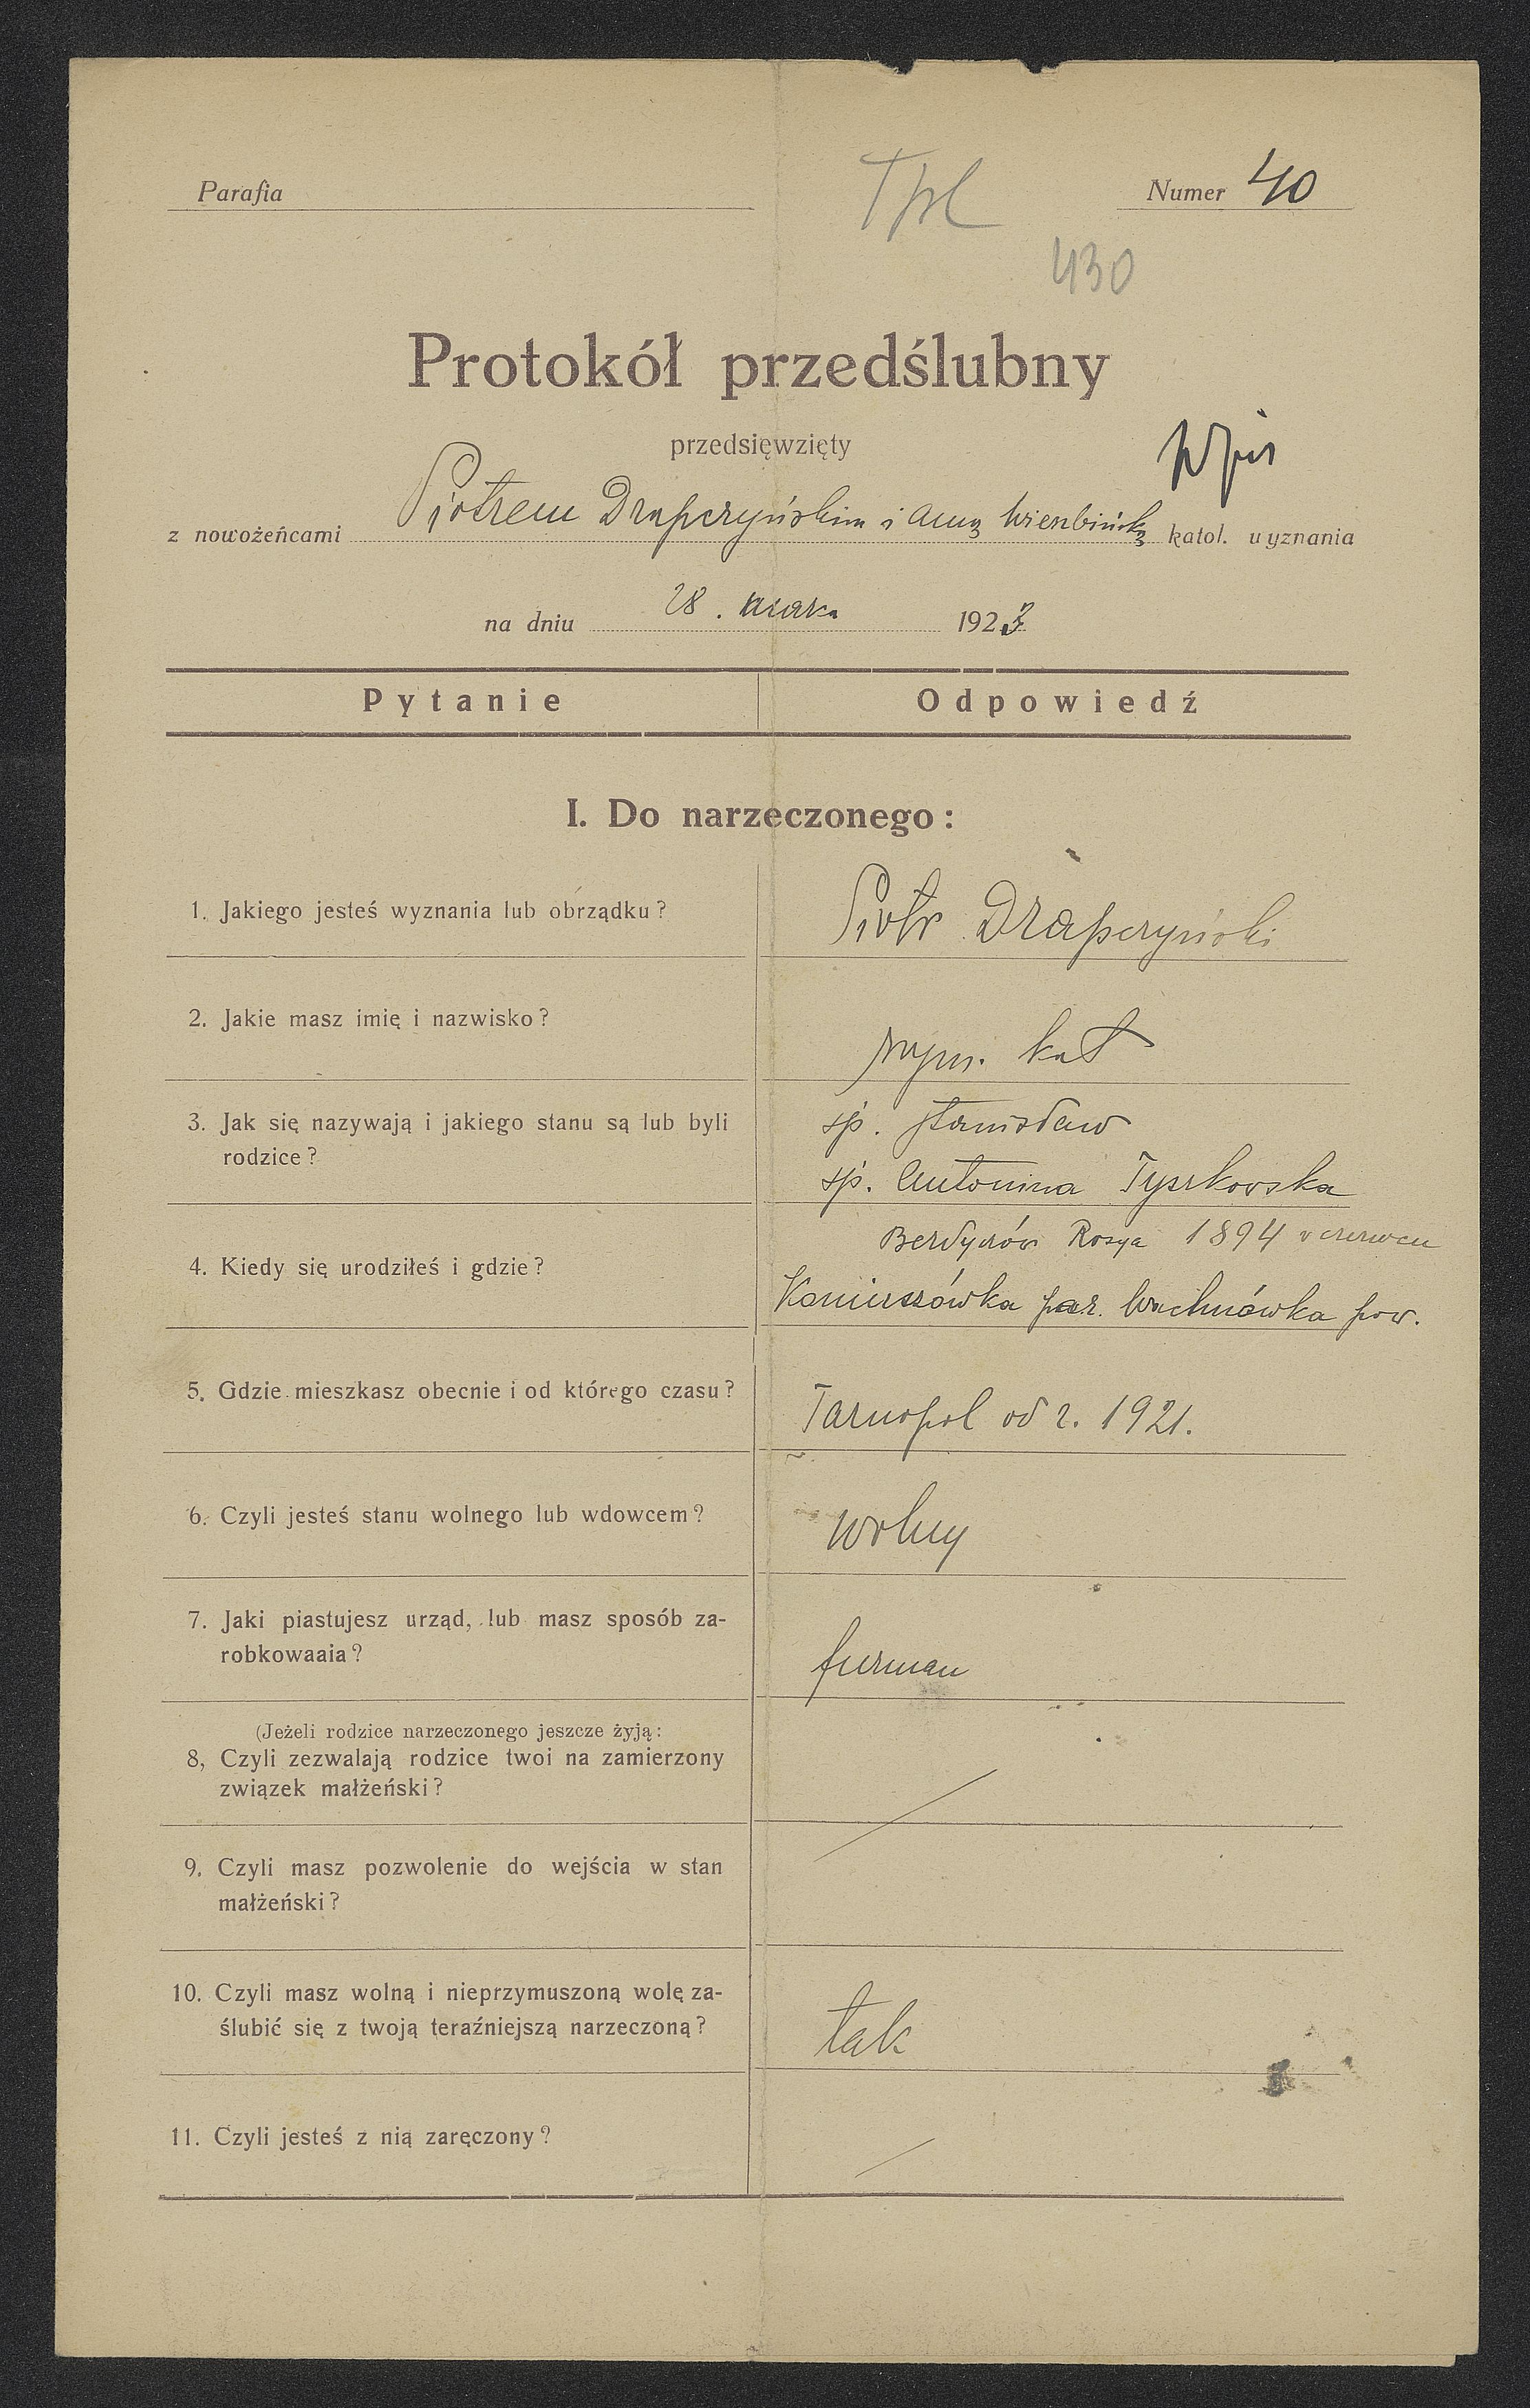 Parafia
Tpl
Numer 40
430
Protokół przedślubny
przedsięwzięty
Wpis
z nowożeńcami Piotrem Drapczyńskim i Anną Wierzbińską katol. wyznania
na dniu 28. marca 1923
Pytanie Odpowiedź
I. Do narzeczonego:
1. Jakiego jesteś wyznania lub obrządku?
Piotr Drapczyński
2. Jakie masz imię i nazwisko?
rzym. kat
3. Jak się nazywają i jakiego stanu są lub byli
rodzice?
śp. Stanisław
śp. Antonina Tyszkowska
4. Kiedy się urodziłeś i gdzie?
Berdyczów Rosya 1894 w czerwcu
par. Wachnówka pow.
5. Gdzie mieszkasz obecnie i od którego czasu?
Tarnopol od r. 1921.
6. Czyli jesteś stanu wolnego lub wdowcem?
wolny
7. Jaki piastujesz urząd, lub masz sposób za-
robkowaaia?
furman
(Jeżeli rodzice narzeczonego jeszcze żyją:
8, Czyli zezwalają rodzice twoi na zamierzony
związek małżeński?
9. Czyli masz pozwolenie do wejścia w stan
małżeński?
10. Czyli masz wolną i nieprzymuszoną wolę za-
ślubić się z twoją teraźniejszą narzeczoną?
tak
11. Czyli jesteś z nią zaręczony?